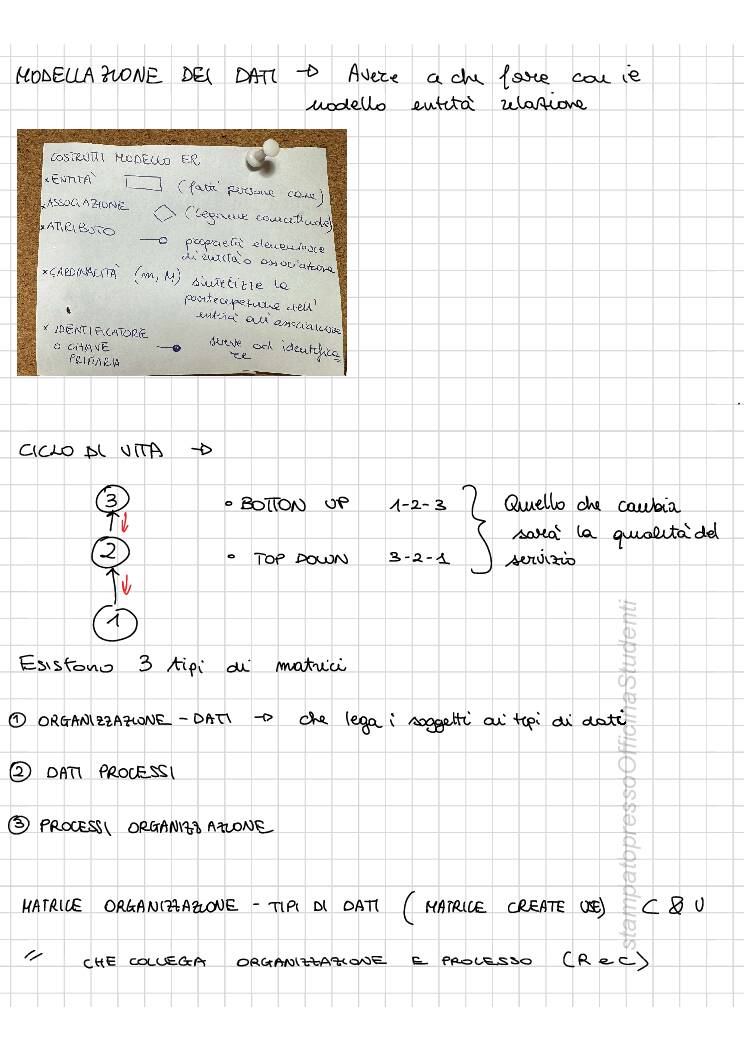 MODELLAZIONE DEI DATI → Avere a che fare con ie
modello entità relazione
COSTRUTTI MODELLO ER
* ENTITÀ (fatti persone cose)
* ASSOCIAZIONE (legame concettuale)
* ATTRIBUTO proprietà elementare
di entità o associazione
* CARDINALITÀ (m, M) sintetizza la
partecipazione dell'
entità all'associazione
* IDENTIFICATORE serve ad identifica
O CHIAVE re
PRIMARIA
CICLO DI VITA →
3
2
1
• BOTTON UP 1-2-3
• TOP DOWN 3-2-1
Quello che cambia
sarà la qualità del
servizio
Esistono 3 tipi di matrici
① ORGANIZZAZIONE - DATI → che lega i soggetti ai tipi di dati
② DATI PROCESSI
③ PROCESSI ORGANIZZAZIONE
MATRICE ORGANIZZAZIONE - TIPI DI DATI (MATRICE CREATE USE) C & U
" CHE COLLEGA ORGANIZZAZIONE E PROCESSO (R e C)
stampatopressoOfficinaStudenti